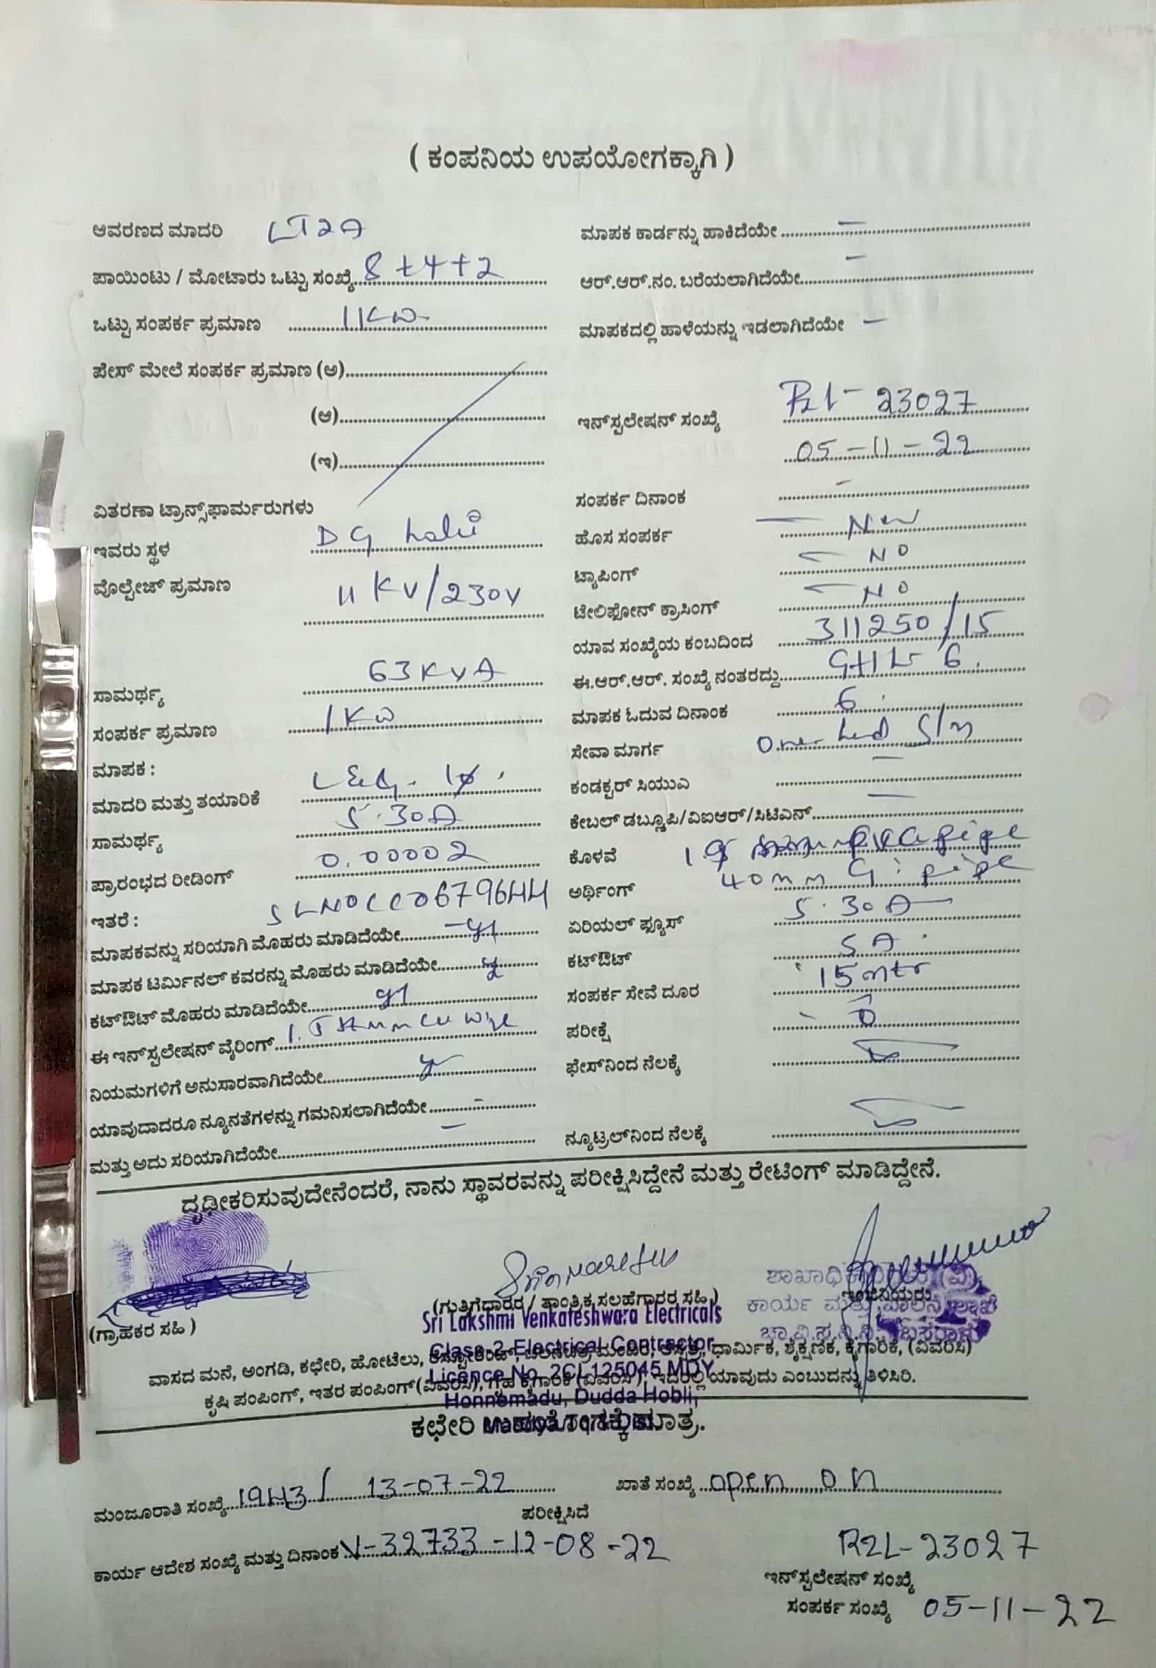 ( ಕಂಪನಿಯ ಉಪಯೋಗಕ್ಕಾಗಿ )
ಆವರಣದ ಮಾದರಿ LT2A
ಪಾಯಿಂಟು / ಮೋಟಾರು ಒಟ್ಟು ಸಂಖ್ಯೆ 8+4+2
ಒಟ್ಟು ಸಂಪರ್ಕ ಪ್ರಮಾಣ 1KW
ಪೇಸ್ ಮೇಲೆ ಸಂಪರ್ಕ ಪ್ರಮಾಣ (ಅ)
(ಆ)
(ಇ)
ವಿತರಣಾ ಟ್ರಾನ್ಸ್‌ಫಾರ್ಮರುಗಳು
ಇವರು ಸ್ಥಳ DG
ವೊಲ್ಟೇಜ್ ಪ್ರಮಾಣ 11 KV/230V
ಸಾಮರ್ಥ್ಯ 63KVA
ಸಂಪರ್ಕ ಪ್ರಮಾಣ 1KW
ಮಾಪಕ :
ಮಾದರಿ ಮತ್ತು ತಯಾರಿಕೆ L&G
ಸಾಮರ್ಥ್ಯ 5-30A
ಪ್ರಾರಂಭದ ರೀಡಿಂಗ್ 0.00002
ಇತರೆ :
ಮಾಪಕವನ್ನು ಸರಿಯಾಗಿ ಮೊಹರು ಮಾಡಿದೆಯೇ
ಮಾಪಕ ಟರ್ಮಿನಲ್ ಕವರನ್ನು ಮೊಹರು ಮಾಡಿದೆಯೇ
ಕಟ್‌ಔಟ್ ಮೊಹರು ಮಾಡಿದೆಯೇ
ಈ ಇನ್‌ಸ್ಟಲೇಷನ್ ವೈರಿಂಗ್
ನಿಯಮಗಳಿಗೆ ಅನುಸಾರವಾಗಿದೆಯೇ
ಯಾವುದಾದರೂ ನ್ಯೂನತೆಗಳನ್ನು ಗಮನಿಸಲಾಗಿದೆಯೇ
ಮತ್ತು ಅದು ಸರಿಯಾಗಿದೆಯೇ
ಮಾಪಕ ಕಾರ್ಡನ್ನು ಹಾಕಿದೆಯೇ
ಆರ್.ಆರ್.ನಂ. ಬರೆಯಲಾಗಿದೆಯೇ
ಮಾಪಕದಲ್ಲಿ ಹಾಳೆಯನ್ನು ಇಡಲಾಗಿದೆಯೇ
ಇನ್‌ಸ್ಟಲೇಷನ್ ಸಂಖ್ಯೆ R2L-23027
05-11-22
ಸಂಪರ್ಕ ದಿನಾಂಕ
ಹೊಸ ಸಂಪರ್ಕ New
ಟ್ಯಾಪಿಂಗ್ NO
ಟೇಲಿಫೋನ್ ಕ್ರಾಸಿಂಗ್ NO
ಯಾವ ಸಂಖ್ಯೆಯ ಕಂಬದಿಂದ 311250/15
ಈ.ಆರ್.ಆರ್. ಸಂಖ್ಯೆ ನಂತರದ್ದು
ಮಾಪಕ ಓದುವ ದಿನಾಂಕ 6
ಸೇವಾ ಮಾರ್ಗ
ಕಂಡಕ್ಟರ್ ಸಿಯುಎ
ಕೇಬಲ್ ಡಬ್ಲ್ಯೂಪಿ/ವಿಐಆರ್/ಸಿಟಿಎನ್
ಕೊಳವೆ PVC pipe
ಅರ್ಥಿಂಗ್ 40mm G.I pipe
ಏರಿಯಲ್ ಫ್ಯೂಸ್ 5-30A
ಕಟ್‌ಔಟ್ 5A
ಸಂಪರ್ಕ ಸೇವೆ ದೂರ 15mtr
ಪರೀಕ್ಷೆ
ಫೇಸ್‌ನಿಂದ ನೆಲಕ್ಕೆ
ನ್ಯೂಟ್ರಲ್‌ನಿಂದ ನೆಲಕ್ಕೆ
ದೃಢೀಕರಿಸುವುದೇನೆಂದರೆ, ನಾನು ಸ್ಥಾವರವನ್ನು ಪರೀಕ್ಷಿಸಿದ್ದೇನೆ ಮತ್ತು ರೇಟಿಂಗ್ ಮಾಡಿದ್ದೇನೆ.
(ಗ್ರಾಹಕರ ಸಹಿ )
(ಗುತ್ತಿಗೆಧಾರರ / ತಾಂತ್ರಿಕ ಸಲಹೆಗಾರರ ಸಹಿ )
Sri Lakshmi Venkateshwara Electricals
Class-2 Electrical Contractor
Licence No. 2CL125045 MDY
Honnemadu, Dudda Hobli,
ವಾಸದ ಮನೆ, ಅಂಗಡಿ, ಕಛೇರಿ, ಹೋಟೆಲು, ಧಾರ್ಮಿಕ, ಶೈಕ್ಷಣಿಕ, ಕೈಗಾರಿಕೆ, (ವಿವರಿಸಿ)
ಕೃಷಿ ಪಂಪಿಂಗ್, ಇತರ ಪಂಪಿಂಗ್ (ವಿವರಿಸಿ), ಗೃಹ ಕೈಗಾರಿಕೆ (ವಿವರಿಸಿ), ಇದರಲ್ಲಿ ಯಾವುದು ಎಂಬುದನ್ನು ತಿಳಿಸಿರಿ.
ಕಛೇರಿ ಉಪಯೋಗಕ್ಕೆ ಮಾತ್ರ.
ಮಂಜೂರಾತಿ ಸಂಖ್ಯೆ 1943/ 13-07-22 ಖಾತೆ ಸಂಖ್ಯೆ open on
ಪರೀಕ್ಷಿಸಿದೆ
ಕಾರ್ಯ ಆದೇಶ ಸಂಖ್ಯೆ ಮತ್ತು ದಿನಾಂಕ V-32733-12-08-22
R2L-23027
ಇನ್‌ಸ್ಟಲೇಷನ್ ಸಂಖ್ಯೆ
ಸಂಪರ್ಕ ಸಂಖ್ಯೆ 05-11-22